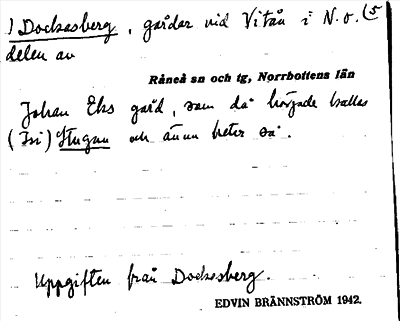 ) Dockasberg, gårdar vid Vitån i N.O. (5
delen av
Råneå sn och tg, Norrbottens län
Johan Eks gård, som då började kallas
(Isi) Stugan och ännu heter så.
Uppgiften från Dockasberg.
EDVIN BRÄNNSTRÖM 1942.